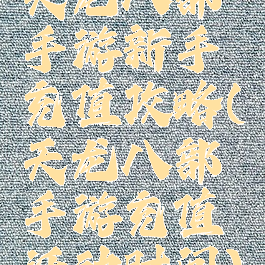 天龙八部
手游新手
充值攻略(
天龙八部
手游充值